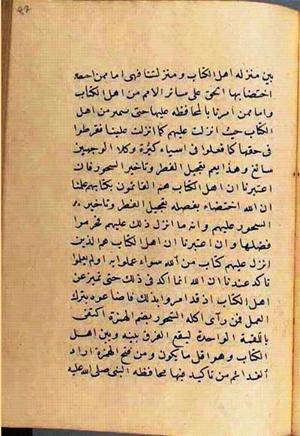 ٩٧
بين منزله اهل الكتاب ومنزلتنا فهى اما ممن
اختصنا بها الحق على سائر الامم من اهل الكتاب
واما ممن امرنا بالمحافظه عليها حتى من اهل
الكتاب حيث انزلت عليهم كما انزلت علينا ففرطوا
فى حقها كما فعلوا فى اشياء كثيرة وكلا الوجهين
سائغ وهذا يعم تعجيل الفطر وتاخير السحور فان
اعتبرنا ان اهل الكتاب هم القائمون بكتابهم علمنا
ان الله اختصنا بفضله بتعجيل الفطر وتاخير
السحور عليهم وانه ما انزل ذلك عليهم فحرموا
فضلها وان اعتبرنا ان اهل الكتاب هم الذين
انزل عليهم كتاب من الله سواء عملوا به او لم يعملوا
تاكد عندنا ان الله انما اكد فى ذلك حتى تتميز عن
اهل الكتاب اذ قد امروا بذلك فاضاعوه بترك
العمل فمن رآى اكله السحور بضم الهمزة اكتفى
باللقمة الواحدة ليقع الفرق بينه وبين اهل
الكتاب وهو اقل ما يكون ومن فتح الهمزة اراد
الغداء من تاكيد فيها محافظه النبى صلى الله عليه